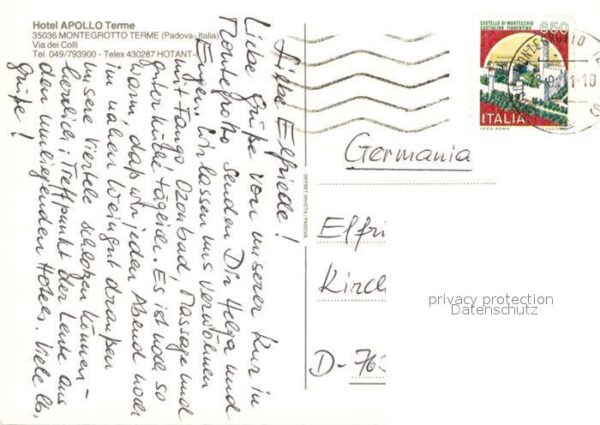 Hotel APOLLO Terme
35036 MONTEGROTTO TERME (Padova-Italia)
Via dei Colli
Tel. 049/793900 - Telex 430287 HOTANT-I
Liebe Elfriede!
Liebe Grüße von unserer Kur in
Montegrotto senden Dir Helga und
Eugen. Wir lassen uns verwöhnen
mit Fango, Ozonbad, Massage und
guter Küche täglich. Es ist noch so
warm, daß wir jeden Abend noch
im nahen Weingut draußen
unsere Viertele schlozen können –
herrlich; Treffpunkt der Leute aus
den umliegenden Hotels. Viele lb.
Grüße!
OFFSET INVICTA/PADOVA
CASTELLO DI MONTECCHIO
CASTIGLION FIORENTINO
650
ITALIA
I.P.Z.S.-ROMA
MONTEGROTTO
Germania
Elfri
Kirch
D-763
privacy protection
Datenschutz